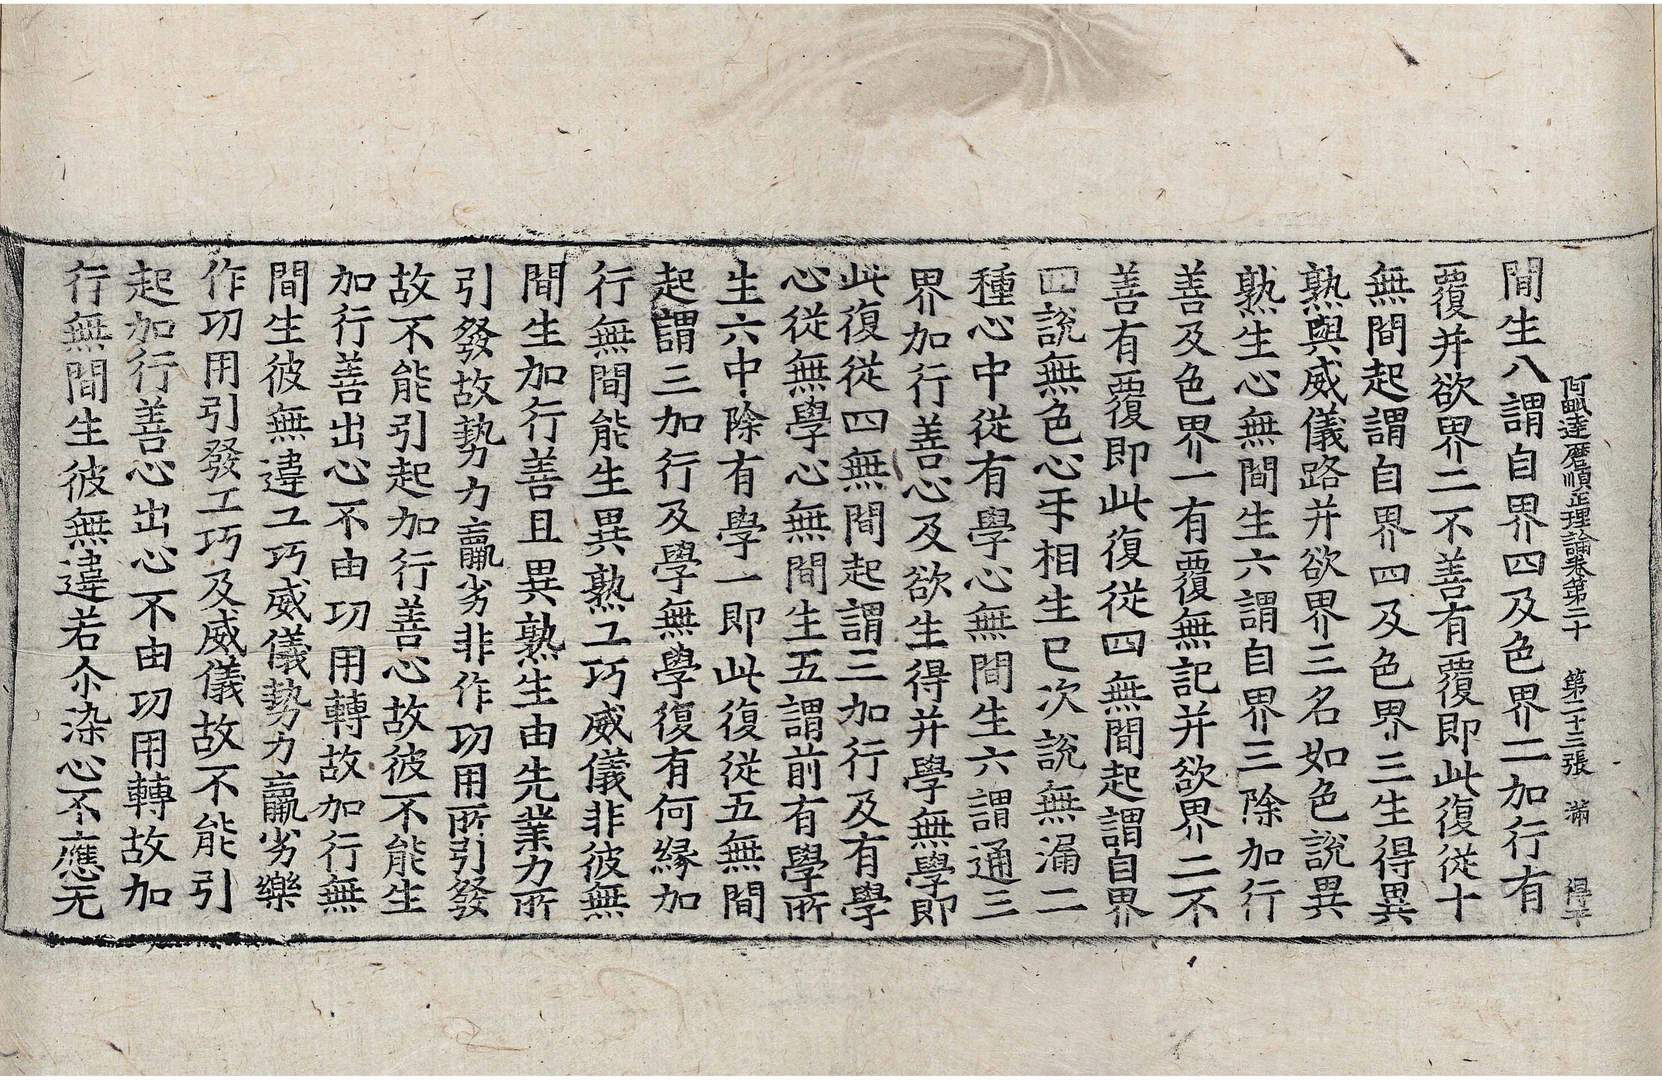 阿毗達磨順正理論卷第二十 第二十三張 滿 得平
間生八謂自界四及色界二加行有
覆并欲界二不善有覆即此復從十
無間起謂自界四及色界三生得異
熟與威儀路并欲界三名如色說異
熟生心無間生六謂自界三除加行
善及色界一有覆無記并欲界二不
善有覆即此復從四無間起謂自界
四說無色心互相生已次說無漏二
種心中從有學心無間生六謂通三
界加行善心及欲生得并學無學即
此復從四無間起謂三加行及有學
心從無學心無間生五謂前有學所
生六中除有學一即此復從五無間
起謂三加行及學無學復有何緣加
行無間能生異熟工巧威儀非彼無
間生加行善且異熟生由先業力所
引發故勢力羸劣非作功用所引發
故不能引起加行善心故彼不能生
加行善出心不由功用轉故加行無
間生彼無違工巧威儀勢力羸劣樂
作功用引發工巧及威儀故不能引
起加行善心出心不由功用轉故加
行無間生彼無違若尒染心不應无